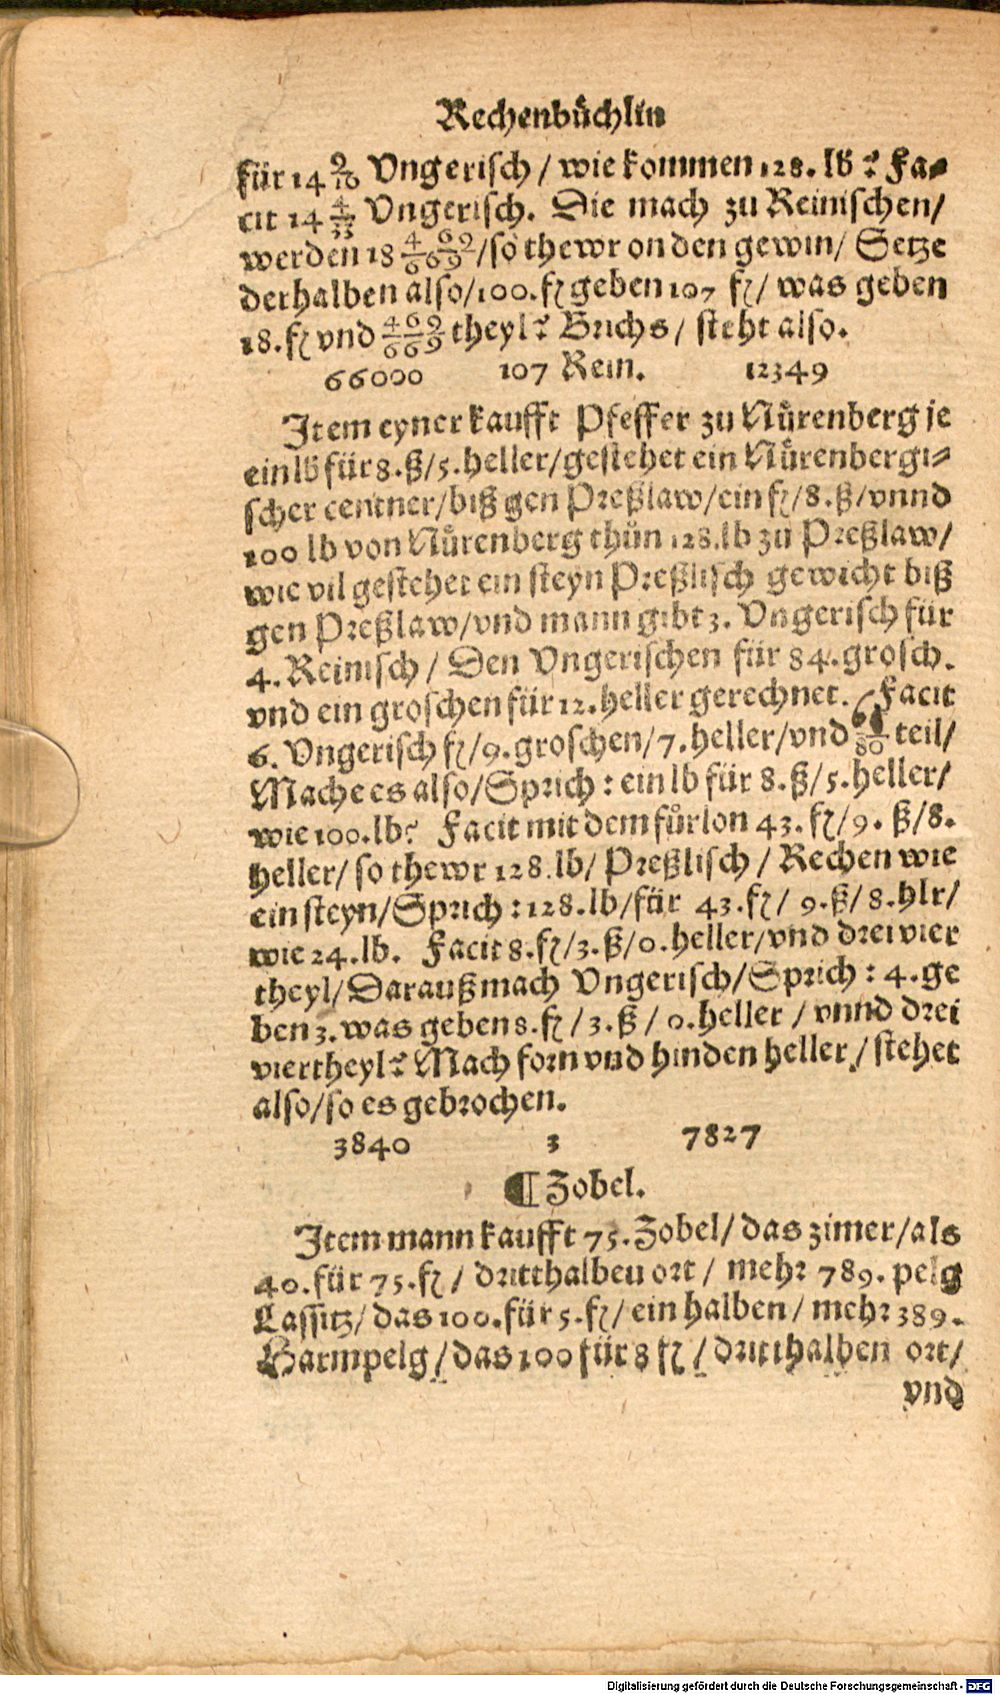 Rechenbůchlin
für 14 9/10 Vngerisch / wie kommen 128. lb ? Fa-
cit 14 4/55 Vngerisch. Die mach zu Reinischen/
werden 18 469/660/so thewr on den gewin/ Setze
derhalben also/100.fl geben 107 fl/ was geben
18.fl vnd 469/660 theyl? Brichs/ steht also.
66000 107 Rein. 12349
Item eyner kaufft Pfeffer zu Nůrenberg je
ein lb für 8.ß/5.heller/gestehet ein Nůrenbergi-
scher centner/biß gen Preßlaw/ein fl/8.ß/vnnd
100 lb von Nůrenberg thůn 128.lb zů Preßlaw/
wie vil gestehet ein steyn Preßlisch gewicht biß
gen Preßlaw/vnd mann gibt 3. Vngerisch für
4. Reinisch / Den Vngerischen für 84.grosch.
vnd ein groschen für 12.heller gerechnet. Facit
6. Vngerisch fl/9.groschen/7.heller/vnd teil/
Mache es also/Sprich : ein lb für 8.ß/5.heller/
wie 100.lb? Facit mit dem fůrlon 43. fl/9. ß/8.
heller/ so thewr 128.lb/ Preßlisch / Rechen wie
ein steyn/Sprich : 128.lb/für 43.fl/ 9.ß/8.hlr/
wie 24.lb. Facit 8.fl/3.ß/0.heller/vnd drei vier
theyl/Darauß mach Vngerisch/Sprich : 4.ge
ben 3. was geben 8.fl /3.ß / 0.heller / vnnd drei
viertheyl? Mach forn vnd hinden heller/ stehet
also/so es gebrochen.
3840 3 7827
¶ Zobel.
Item mann kaufft 75. Zobel/ das zimer/als
40.für 75.fl / dritthalben ort / mehr 789. pelg
Lassitz/das 100.für 5.fl/ ein halben / mehr 389.
Harmpelg/das 100 für 8 fl / dritthalben ort/
vnd
Digitalisierung gefördert durch die Deutsche Forschungsgemeinschaft - DFG